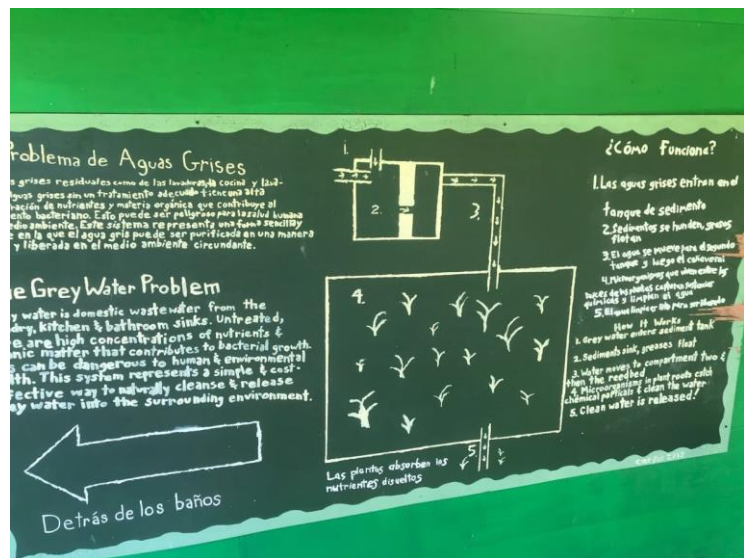 roblema de Aguas Grises
s grises residuales como de las lavadoras, la cocina y lava-
guas grises sin un tratamiento adecuado tiene una alta
ración de nutrientes y materia orgánica que contribuye al
ento bacteriano. Esto puede ser peligroso para la salud humana
edio ambiente. Este sistema representa una forma sencilla y
e en la que el agua gris puede ser purificada en una manera
y liberada en el medio ambiente circundante.
e Grey Water Problem
y water is domestic wastewater from the
dry, kitchen & bathroom sinks. Untreated,
e are high concentrations of nutrients &
anic matter that contributes to bacterial growth.
s can be dangerous to human & environmental
lth. This system represents a simple & cost-
fective way to naturally cleanse & release
ey water into the surrounding environment.
Detrás de los baños
1.
2.
3.
4.
5.
Las plantas absorben los
nutrientes disueltos
¿Cómo Funciona?
1. Las aguas grises entran en el
tanque de sedimento
2. Sedimentos se hunden, grasas
flotan
3. El agua se mueve para el segundo
tanque y luego el cañaveral
4. Microorganismos que viven entre las
raices de las plantas
químicos y limpien el agua
5. El agua limpia
How it Works
1. Grey water enters sediment tank
2. Sediments sink, greases float
3. Water moves to compartment two &
then the reedbed
4. Microorganisms in plant roots catch
chemical particals & clean the water
5. Clean water is released!